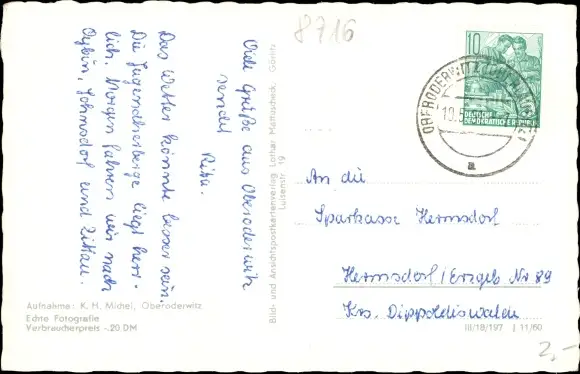 8716
Viele Grüße aus Oberoderwitz
sendet
Rita.
Das Wetter könnte besser sein.
Die Jugendherberge liegt herr-
lich. Morgen fahren wir nach
Oybin, Johnsdorf und Zittau.
Aufnahme: K. H. Michel, Oberoderwitz
Echte Fotografie
Verbraucherpreis -.20 DM
Bild- und Ansichtspostkartenverlag Lothar Mattauscheck, Görlitz
Luisenstr. 19
10
DEUTSCHE
DEMOKRATISCHE REPUBLIK
OBERODERWITZ
10.5.
a
An die
Sparkasse Hermsdorf
Hermsdorf/Erzgeb Nr 89
Krs. Dippoldiswalde
III/18/197 J 11/60
2,-